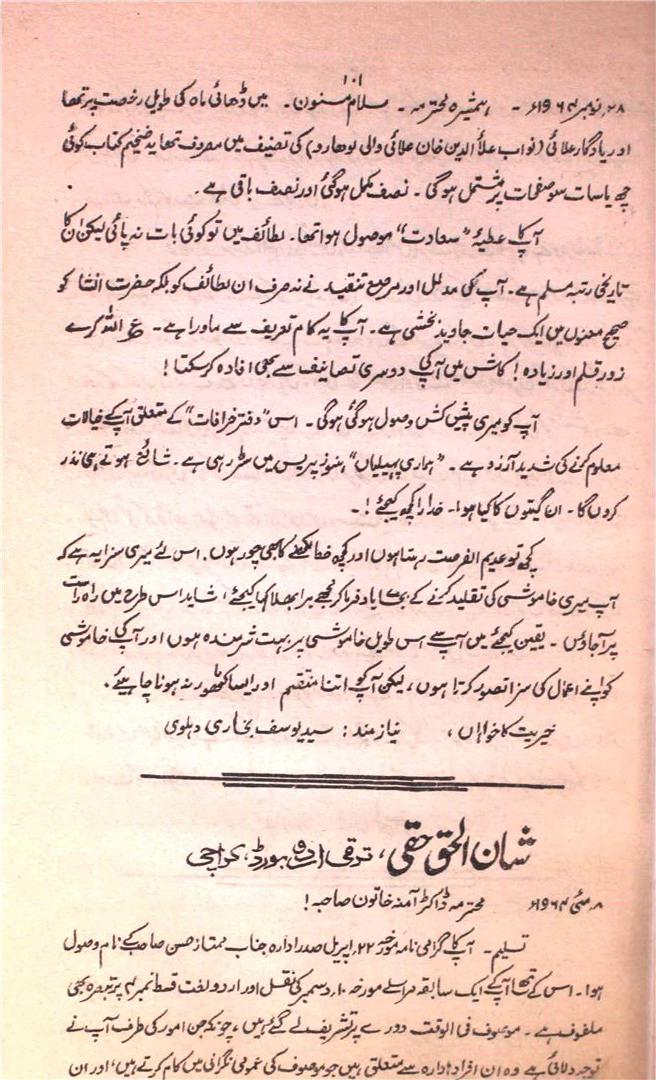 ۱۰۱
۲۸؍نومبر ۱۹۶۴ء - ہمشیرہ محترمہ - سلام مسنون - میں ڈھائی ماہ کی طویل رخصت پر تھا
اور یادگار علائی (نواب علاؤالدین خان علائی والی لوھارو) کی تصنیف میں مصروف تھا یہ ضخیم کتاب کوئی
چھ یا سات سو صفحات پر مشتمل ہوگی - نصف مکمل ہوگئی اور نصف باقی ہے -
آپ کا عطیۂ "سعادت" موصول ہوا تھا - لطائف میں تو کوئی بات نہ پائی لیکن ان کا
تاریخی رتبہ مسلم ہے - آپ کی مدلل اور مرصع تنقید نے نہ صرف ان لطائف کو بلکہ حضرت انشا کو
صحیح معنوں میں ایک حیات جاوید بخشی ہے - آپ کا یہ کام تعریف سے ماورا ہے - ع اللہ کرے
زور قلم اور زیادہ ! کاش میں آپ کی دوسری تصانیف سے بھی افادہ کر سکتا !
آپ کو میری پیش کش وصول ہوگئی ہوگی - اس "دفتر خرافات" کے متعلق آپ کے خیالات
معلوم کرنے کی شدید آرزو ہے - "ہماری پہیلیاں" ہنوز پریس میں سڑ رہی ہے - شائع ہوتے ہی نذر
کروں گا - ان گیتوں کا کیا ہوا - خدارا کچھ کیجئے ! -
کچھ تو عدیم الفرصت رہتا ہوں اور کچھ خط لکھنے کا بھی چور ہوں - اس لئے میری سزا یہ ہے کہ
آپ میری خاموشی کی تقلید کرنے کے بجائے یاد فرما کر مجھے برا بھلا کہا کیجئے، شاید اس طرح میں راہ راست
پر آجاؤں - یقین کیجئے میں آپ سے اس طویل خاموشی پر بہت شرمندہ ہوں اور آپ کی خاموشی
کو اپنے اعمال کی سزا تصور کرتا ہوں، لیکن آپ کو اتنا منتقم اور ایسا کٹھور نہ ہونا چاہیئے -
خیریت کا خواہاں، نیاز مند : سید یوسف بخاری دہلوی
شان الحق حقی، ترقی اردو بورڈ، کراچی
۸؍مئی ۱۹۶۴ء محترمہ ڈاکٹر آمنہ خاتون صاحبہ !
تسلیم - آپ کا گرامی نامہ مورخہ ۲۲؍اپریل صدر ادارہ جناب ممتاز حسن صاحب کے نام وصول
ہوا - اس کے ساتھ آپ کے ایک سابقہ مراسلے مورخہ ۱۰؍دسمبر کی نقل اور اردو لغت قسط نمبر ۴ پر تبصرہ بھی
ملفوف ہے - موصوف فی الوقت دورے پر تشریف لے گئے ہیں، چونکہ جن امور کی طرف آپ نے
توجہ دلائی ہے وہ ان افراد ادارہ سے متعلق ہیں جو موصوف کی عمومی نگرانی میں کام کرتے ہیں، اور ان